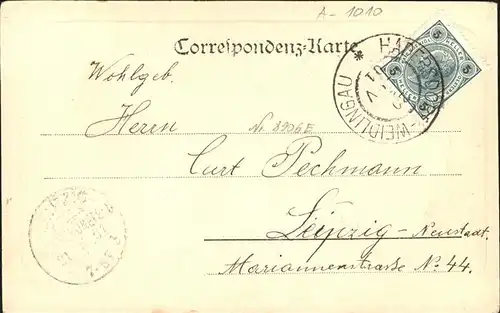 A-1010
Correspondenz-Karte
5 5
HADERSDORF-WEIDLINGAU
Wohlgeb.
Herrn
Nr 8906E
Curt Pechmann
Leipzig-Neustadt
Mariannenstrasse No. 44.